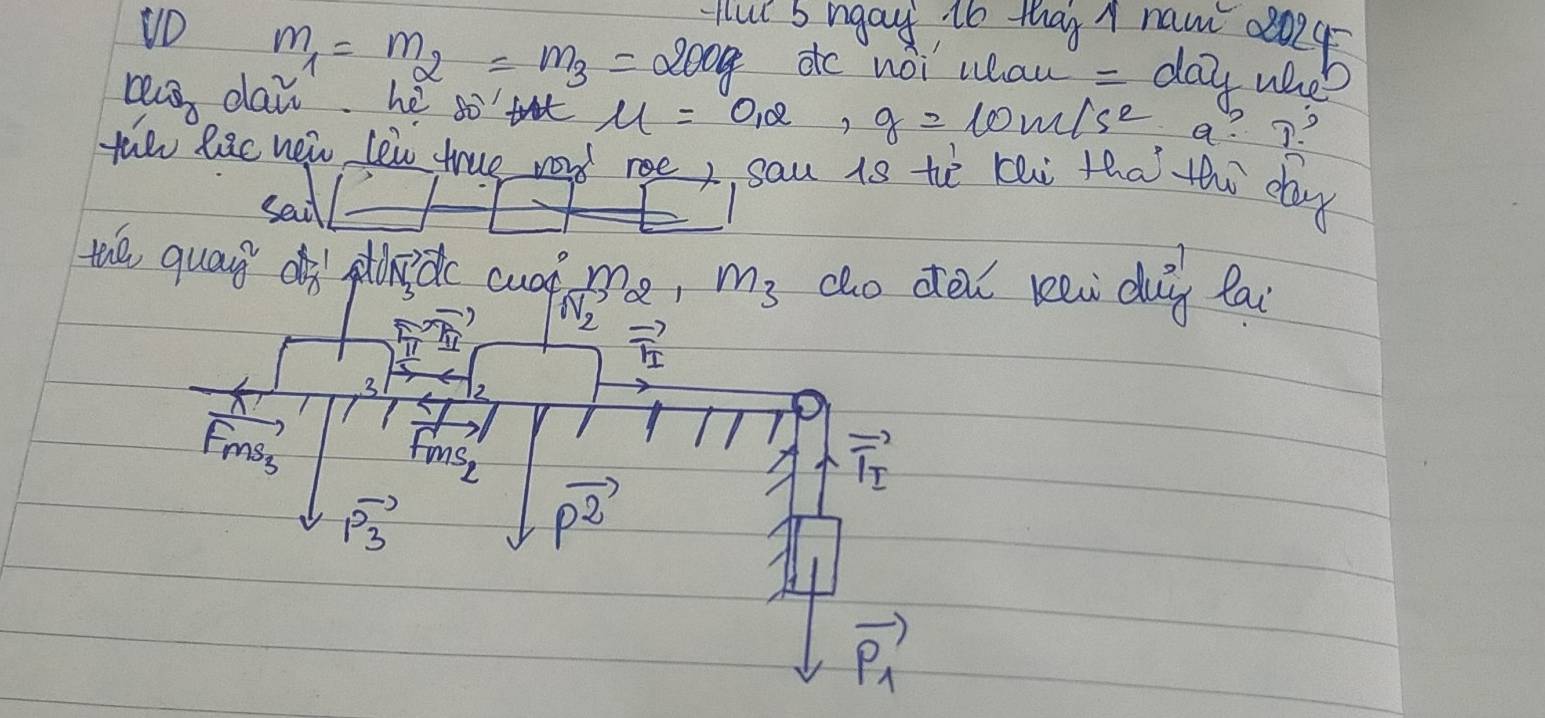 Thứ 5 ngày 16 tháng 1 năm 2025
VD m₁ = m₂ = m₃ = 200g đc nối nhau = dây nhẹ
không dãn. hệ số μ = 0,2, g = 10m/s² a? T?
tính lực nén lên trục ròng rọc, sau 1s từ khi thả thì dây
sai
tính quãng đg đi đc của m₂, m₃ cho đến khi dừng lại
N₃ N₂
T_II T_II T_I
3 2
Fms₃ Fms₂ T_I
P₃ P2
P₁